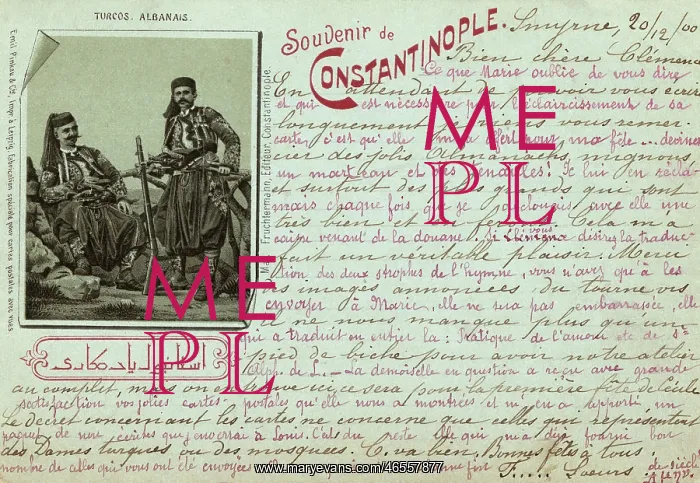 TURCOS. ALBANAIS.
Souvenir de
CONSTANTINOPLE.
Emil Pinkau & Co, Impr. à Leipzig. Fabrication spéciale pour cartes postales avec vues
Fruchtermann, Editeur, Constantinople.
Smyrne, 20/12/00
Bien chère Clémence
Ce que Marie oublie de vous dire
En attendant de pouvoir vous écrire
et qui est nécessaire pour l'éclaircissement de sa
longuement je viens vous remer-
carte, c'est qu'elle m'a offert pour ma fête ... devinez
cier des jolis Almanachs mignons,
un marteau et des tenailles! Je lui en
et surtout des plus grands qui sont
mais chaque fois que je avec elle une
très bien Cela m'a
caisse venant de la douane. Si Clémence désirez la traduc-
fait un véritable plaisir. Merci
tion des deux strophes de l'hymne, vous n'avez qu'à les
es images annonçées du tourne vis
envoyer à Marie, elle ne sera pas embarrassée, elle
il ne nous manque plus qu'un
qui a traduit en entier la: Pratique de l'amour de St
pied de biche pour avoir notre atelier
Alp. de L. — La demoiselle en question a reçu avec grande
au complet, mais on ce sera pour la première fête de l'école
satisfaction vos jolies cartes-postales qu'elle nous a montrées et m'en a apporté un
Le décret concernant les cartes ne concerne que celles qui représentent
paquet de non écrites que j'enverrai à Louis. C'est du reste elle qui m'a déjà fourni bon
des Dames turques ou des mosquées. Ça va bien, Bonnes fêtes à tous
nombre de celles qui vous ont été envoyées
F.... Soeurs
ME
PL
ME
PL
www.maryevans.com/46557877